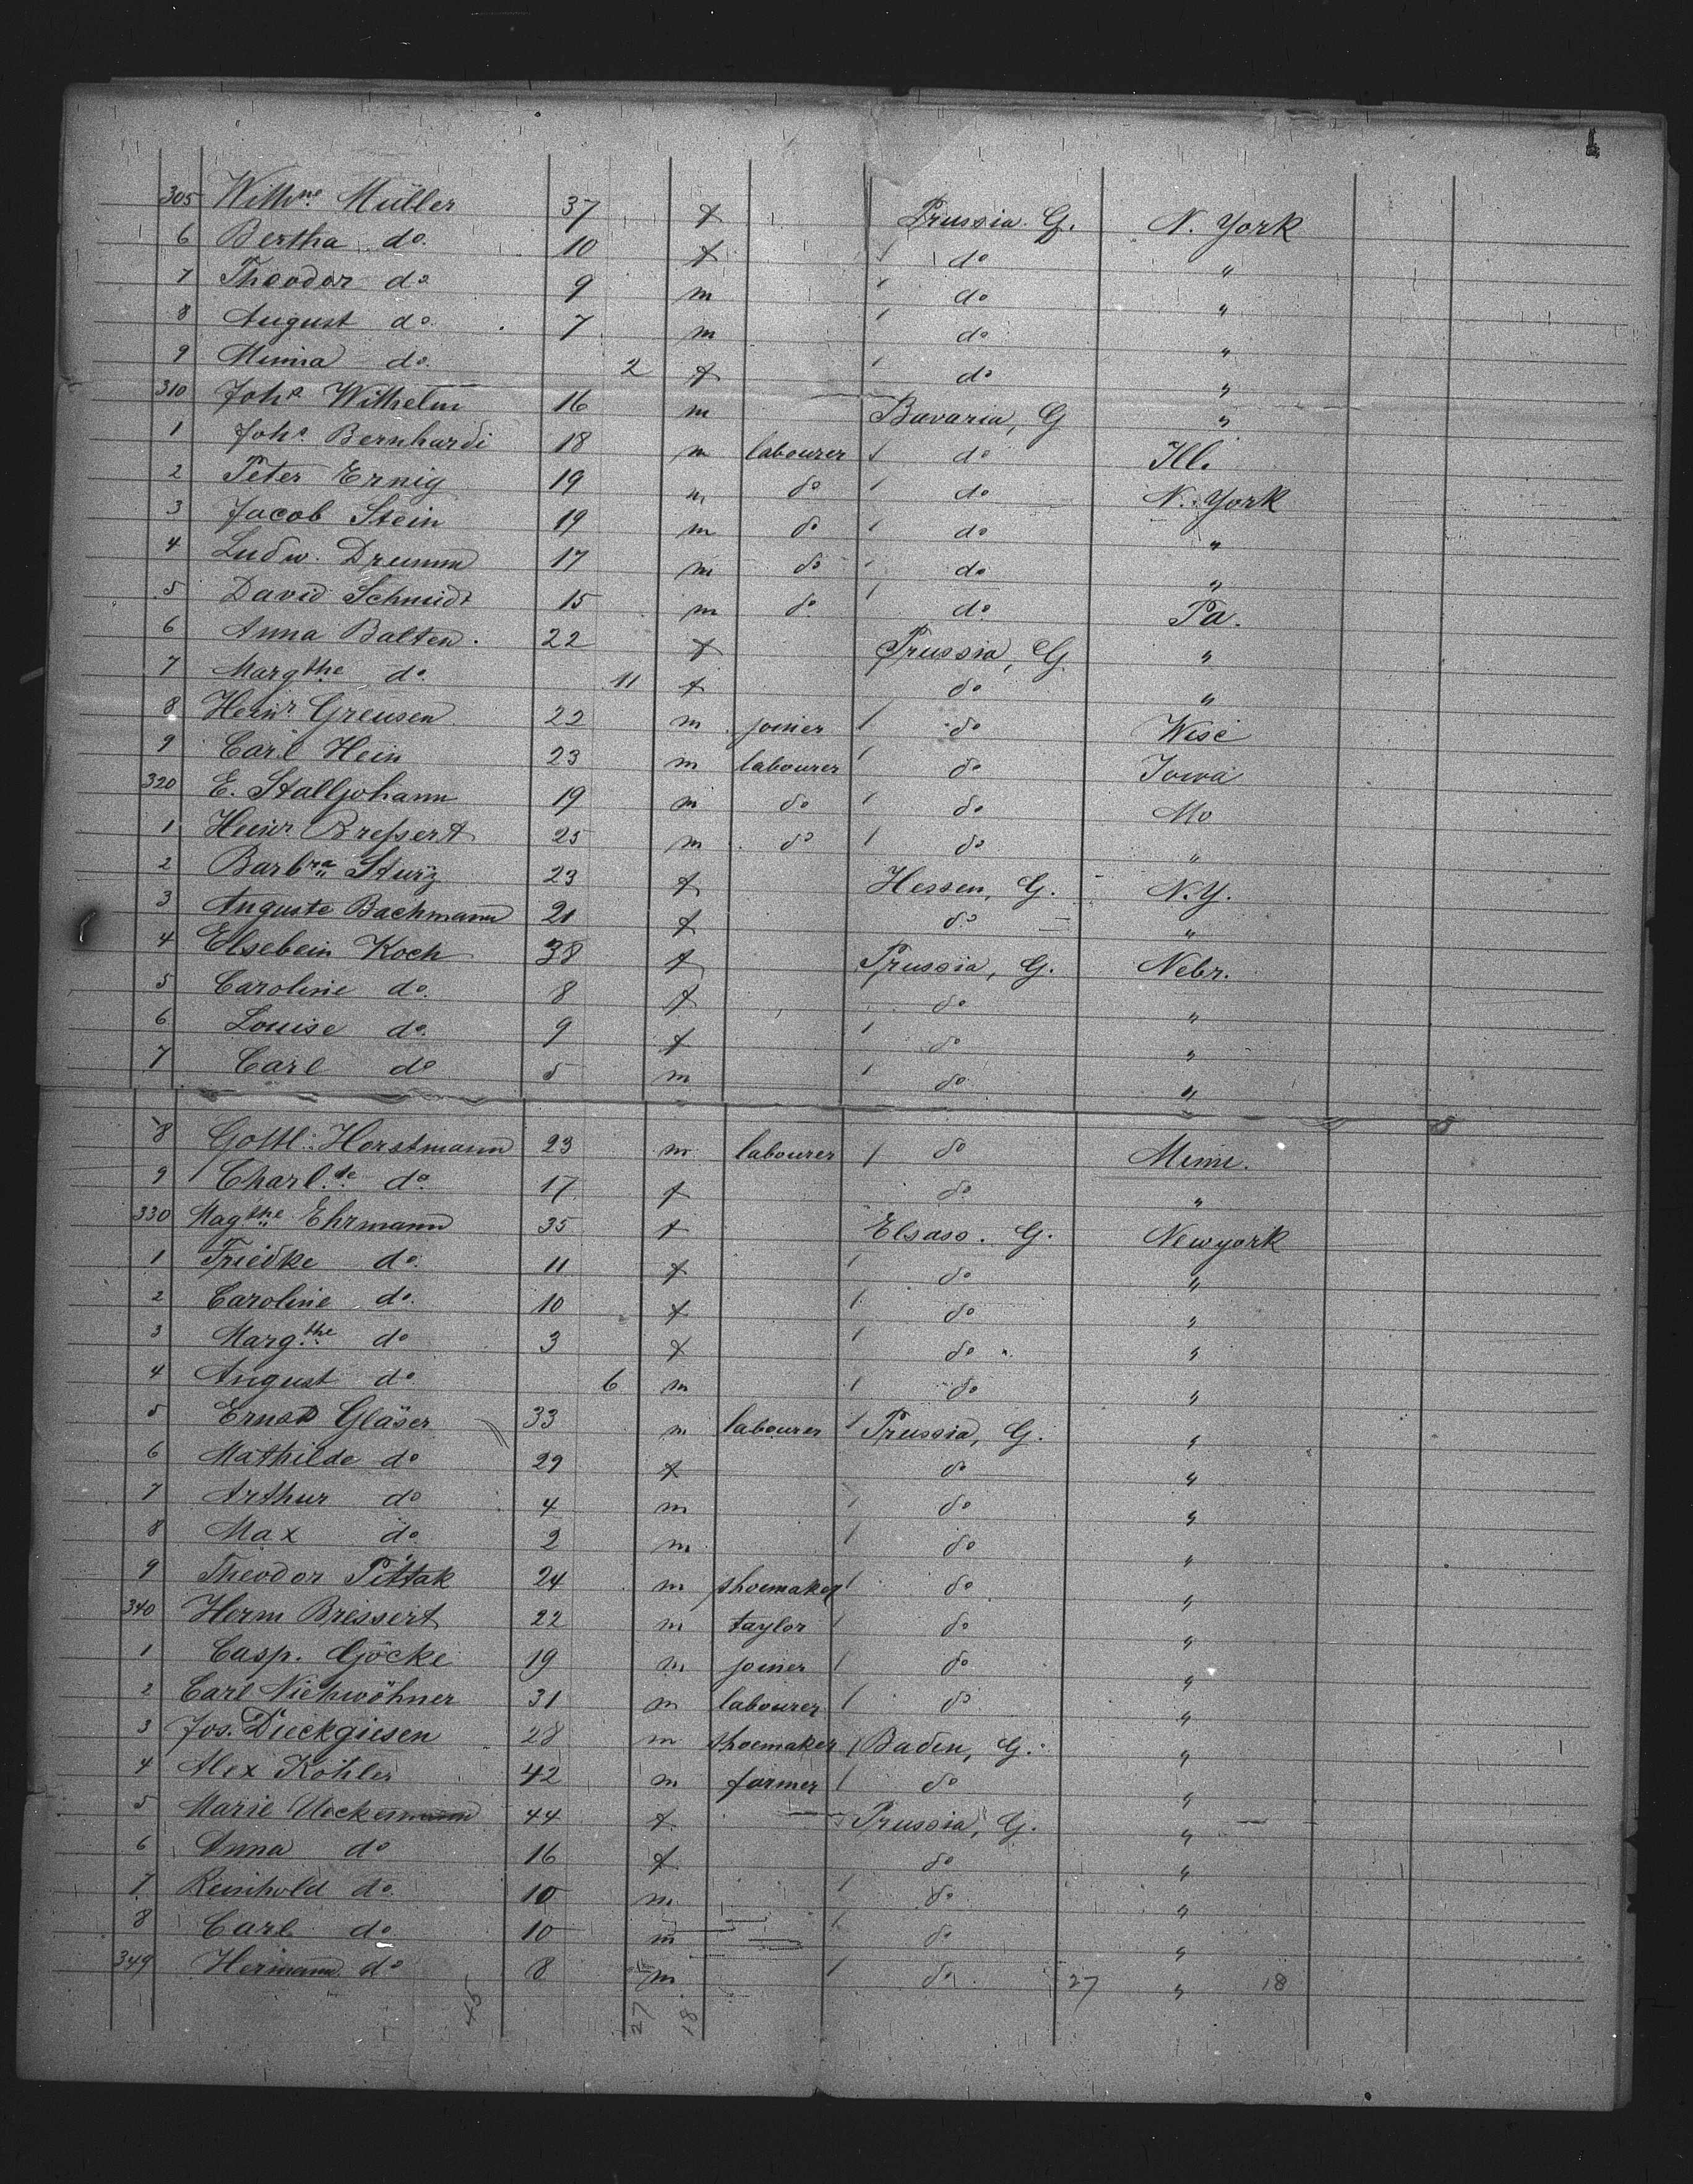 305 Wilhne Müller 37 f Prussia. G. N. York
6 Bertha do. 10 f do "
7 Theodor do 9 m do "
8 August do. 7 m do "
9 Minna do. 2 f do "
310 Johs Wilhelm 16 m Bavaria, G "
1 Johs Bernhardi 18 m labourer do Ill.
2 Peter Ernig 19 m do do N. York
3 Jacob Stein 19 m do do "
4 Ludw. Drumm 17 m do do "
5 David Schmidt 15 m do. do. Pa.
6 Anna Balten. 22 f Prussia, G "
7 Margthe do. 11 f do "
8 Heinr Greusen 22 m joiner do Wisc
9 Carl Hein 23 m labourer do Iowa
320 E. Stalljohann 19 m do do Mo
1 Heinr Breßert 25 m do do "
2 Barbra Sturz 23 f Hessen, G. N.Y.
3 Auguste Bachmann 21 f do "
4 Elsebein Koch 38 f Prussia, G. Nebr.
5 Caroline do. 8 f do "
6 Louise do. 9 f do "
7 Carl do 5 m do "
8 Gottl. Horstmann 23 m labourer do Minn.
9 Charl.te do 17 f do "
330 Magthe Ehrmann 35 f Elsass. G. Newyork
1 Friedke do. 11 f do "
2 Caroline do. 10 f do "
3 Marg.the do 3 f do "
4 August do 6 m do "
5 Ernst Gläser 33 m labourer Prussia, G. "
6 Mathilde do 29 f do "
7 Arthur do 4 m do "
8 Max do 2 m do "
9 Theodor Pittak 24 m shoemaker do "
340 Herm Bressert 22 m taylor do "
1 Casp. Göcke 19 m joiner do "
2 Carl Niehwöhner 31 m labourer do "
3 Jos. Dieckgiesen 28 m shoemaker Baden, G. "
4 Alex Köhler 42 m farmer do "
5 Marie 44 f Prussia, G. "
6 Anna do 16 f do "
7 Reinhold do. 10 m do "
8 Carl do 10 m do "
349 Hermann do 8 m do 27 " 18
45 27 18